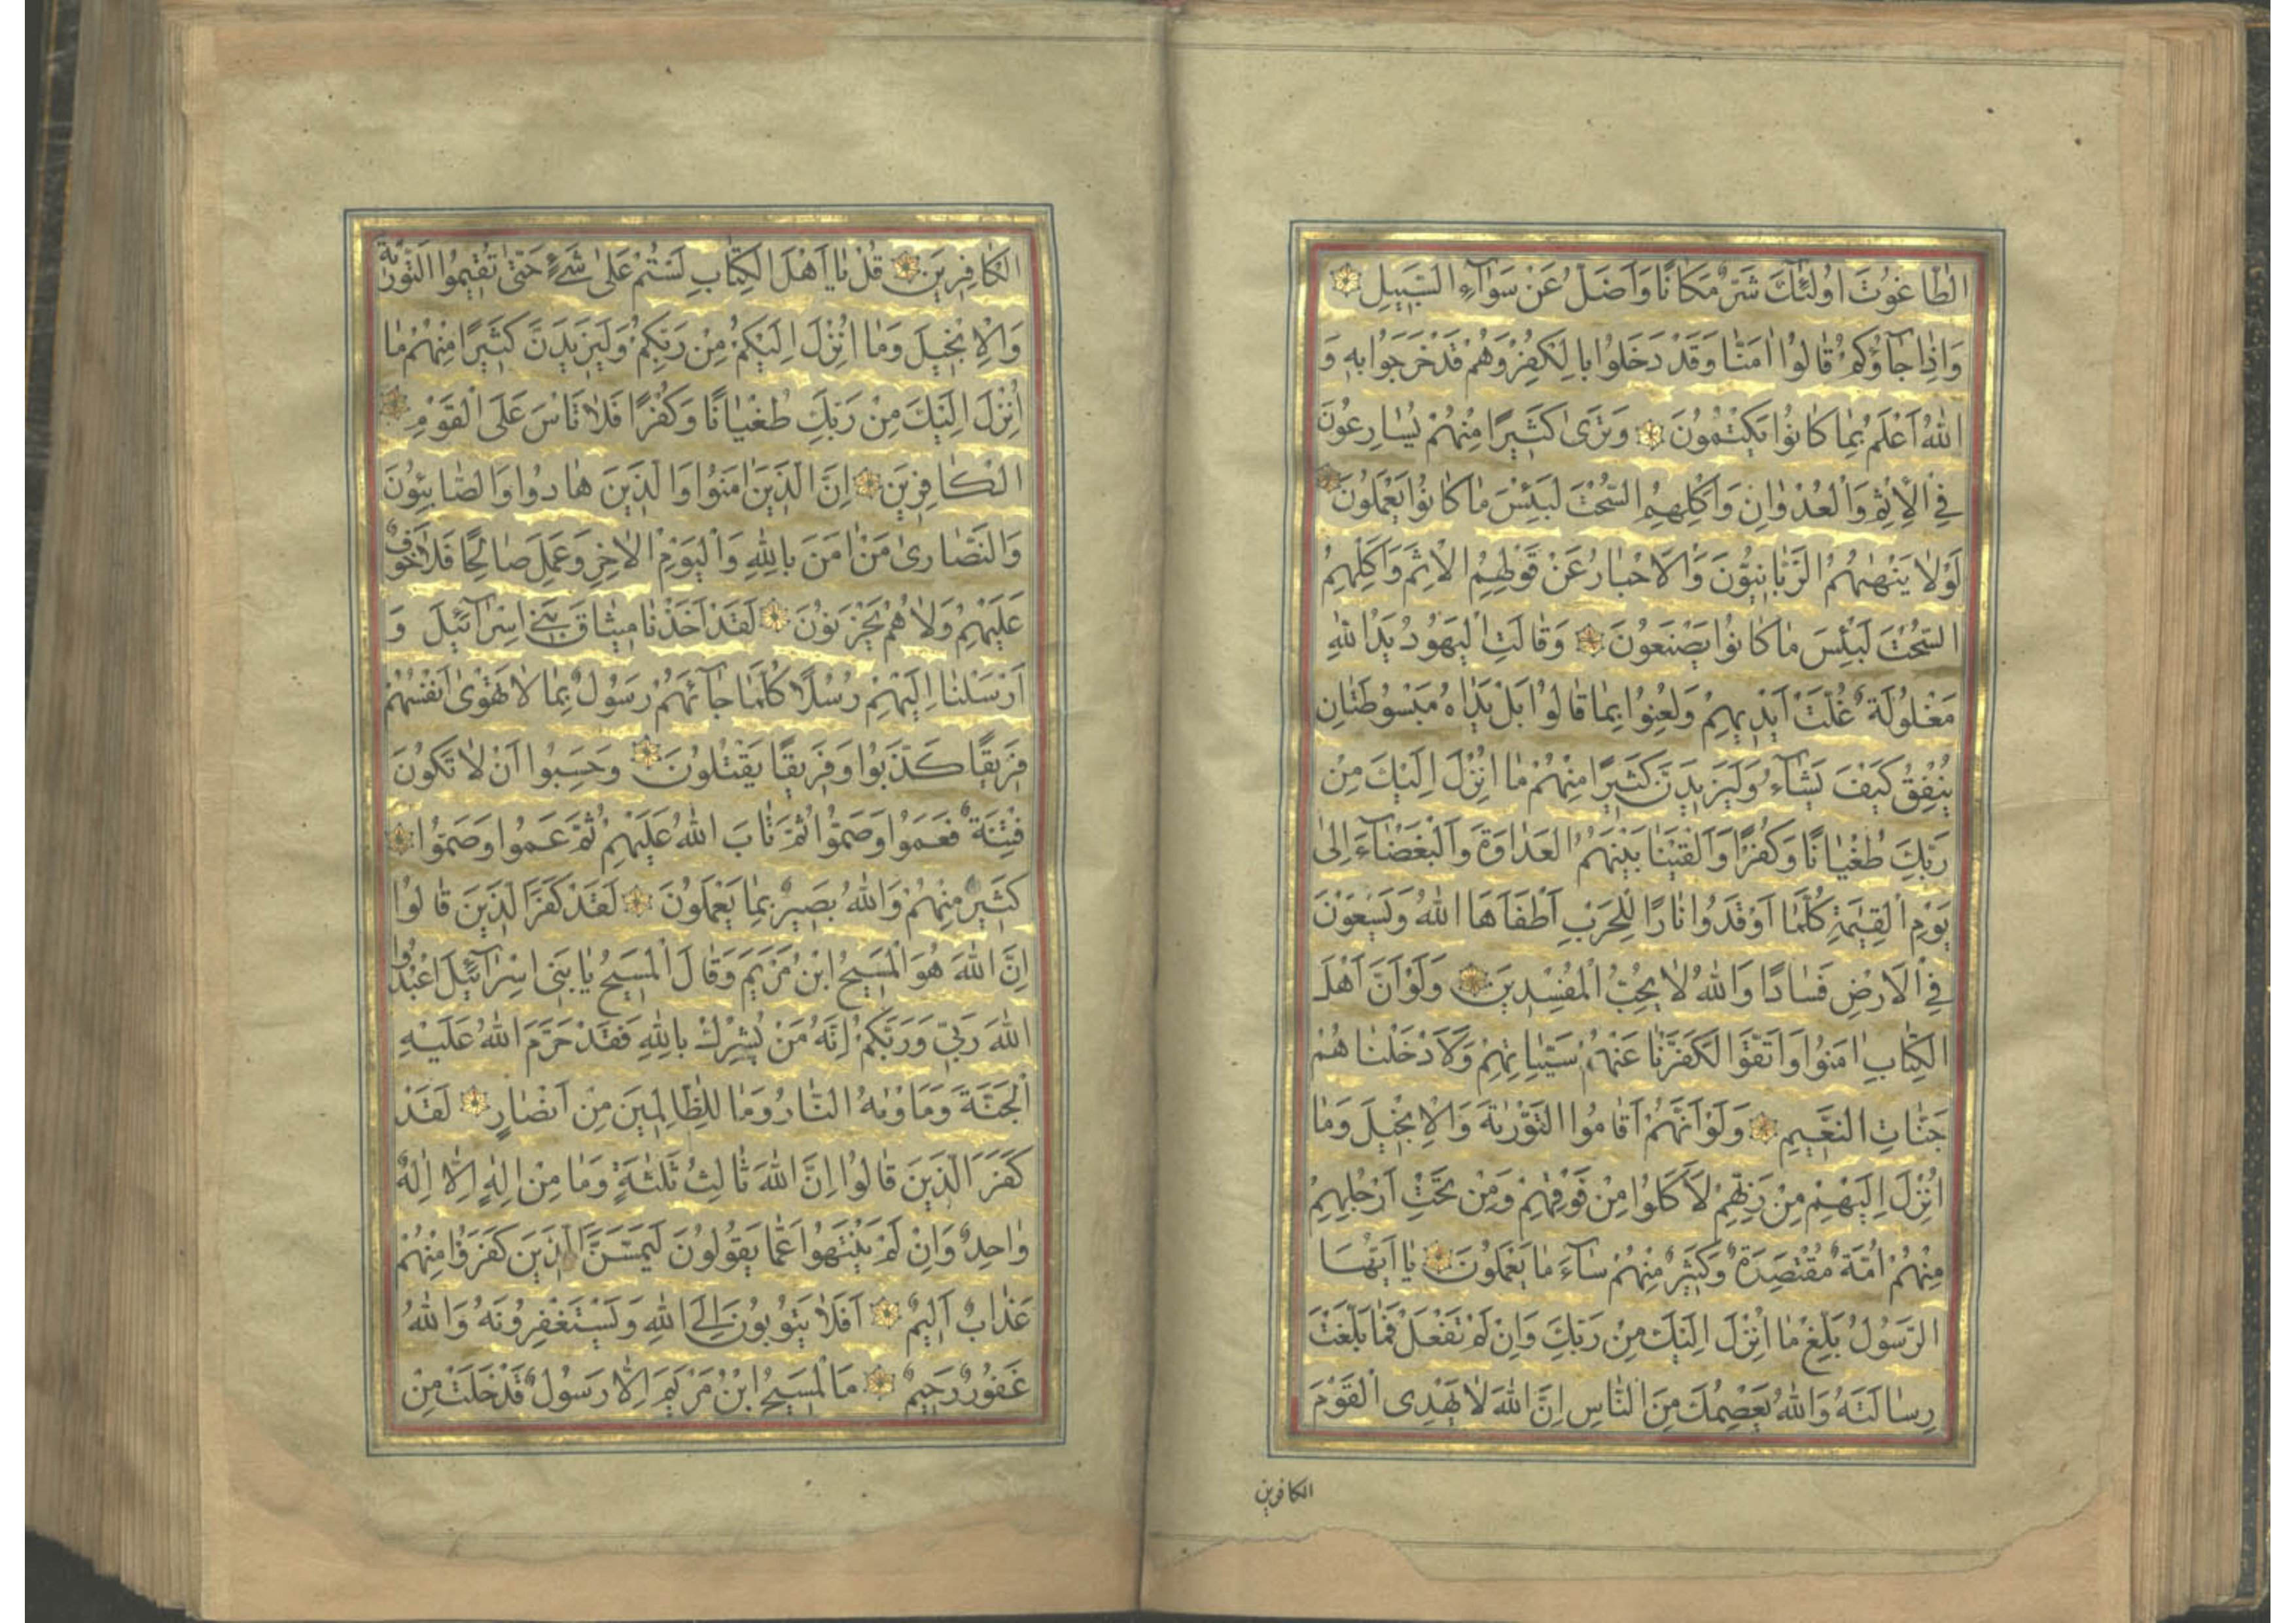 الطَّاغُوتَ اُولٰئِكَ شَرٌّ مَكَانًا وَاَضَلُّ عَنْ سَوَآءِ السَّبِيلِ
وَاِذَا جَآؤُكُمْ قَالُوا اٰمَنَّا وَقَدْ دَخَلُوا بِالْكُفْرِ وَهُمْ قَدْ خَرَجُوا بِهِ وَ
اللّٰهُ اَعْلَمُ بِمَا كَانُوا يَكْتُمُونَ وَتَرٰى كَثِيرًا مِنْهُمْ يُسَارِعُونَ
فِي الْاِثْمِ وَالْعُدْوَانِ وَاَكْلِهِمِ السُّحْتَ لَبِئْسَ مَا كَانُوا يَعْمَلُونَ
لَوْلَا يَنْهٰىهُمُ الرَّبَّانِيُّونَ وَالْاَحْبَارُ عَنْ قَوْلِهِمِ الْاِثْمَ وَاَكْلِهِمِ
السُّحْتَ لَبِئْسَ مَا كَانُوا يَصْنَعُونَ وَقَالَتِ الْيَهُودُ يَدُ اللّٰهِ
مَغْلُولَةٌ غُلَّتْ اَيْدِيهِمْ وَلُعِنُوا بِمَا قَالُوا بَلْ يَدَاهُ مَبْسُوطَتَانِ
يُنْفِقُ كَيْفَ يَشَآءُ وَلَيَزِيدَنَّ كَثِيرًا مِنْهُمْ مَا اُنْزِلَ اِلَيْكَ مِنْ
رَبِّكَ طُغْيَانًا وَكُفْرًا وَاَلْقَيْنَا بَيْنَهُمُ الْعَدَاوَةَ وَالْبَغْضَآءَ اِلٰى
يَوْمِ الْقِيٰمَةِ كُلَّمَا اَوْقَدُوا نَارًا لِلْحَرْبِ اَطْفَاَهَا اللّٰهُ وَيَسْعَوْنَ
فِي الْاَرْضِ فَسَادًا وَاللّٰهُ لَا يُحِبُّ الْمُفْسِدِينَ وَلَوْ اَنَّ اَهْلَ
الْكِتَابِ اٰمَنُوا وَاتَّقَوْا لَكَفَّرْنَا عَنْهُمْ سَيِّئَاتِهِمْ وَلَاَدْخَلْنَا هُمْ
جَنَّاتِ النَّعِيمِ وَلَوْ اَنَّهُمْ اَقَامُوا التَّوْرٰيةَ وَالْاِنْجِيلَ وَمَا
اُنْزِلَ اِلَيْهِمْ مِنْ رَبِّهِمْ لَاَكَلُوا مِنْ فَوْقِهِمْ وَمِنْ تَحْتِ اَرْجُلِهِمْ
مِنْهُمْ اُمَّةٌ مُقْتَصِدَةٌ وَكَثِيرٌ مِنْهُمْ سَآءَ مَا يَعْمَلُونَ يَا اَيُّهَا
الرَّسُولُ بَلِّغْ مَا اُنْزِلَ اِلَيْكَ مِنْ رَبِّكَ وَاِنْ لَمْ تَفْعَلْ فَمَا بَلَّغْتَ
رِسَالَتَهُ وَاللّٰهُ يَعْصِمُكَ مِنَ النَّاسِ اِنَّ اللّٰهَ لَا يَهْدِى الْقَوْمَ
الكافرين
الْكَافِرِينَ قُلْ يَا اَهْلَ الْكِتَابِ لَسْتُمْ عَلٰى شَيْءٍ حَتّٰى تُقِيمُوا التَّوْرٰيةَ
وَالْاِنْجِيلَ وَمَا اُنْزِلَ اِلَيْكُمْ مِنْ رَبِّكُمْ وَلَيَزِيدَنَّ كَثِيرًا مِنْهُمْ مَا
اُنْزِلَ اِلَيْكَ مِنْ رَبِّكَ طُغْيَانًا وَكُفْرًا فَلَا تَاْسَ عَلَى الْقَوْمِ
الْكَافِرِينَ اِنَّ الَّذِينَ اٰمَنُوا وَالَّذِينَ هَادُوا وَالصَّابِئُونَ
وَالنَّصَارٰى مَنْ اٰمَنَ بِاللّٰهِ وَالْيَوْمِ الْاٰخِرِ وَعَمِلَ صَالِحًا فَلَا خَوْفٌ
عَلَيْهِمْ وَلَا هُمْ يَحْزَنُونَ لَقَدْ اَخَذْنَا مِيثَاقَ بَنِي اِسْرَآئِيلَ وَ
اَرْسَلْنَا اِلَيْهِمْ رُسُلًا كُلَّمَا جَآءَهُمْ رَسُولٌ بِمَا لَا تَهْوٰى اَنْفُسُهُمْ
فَرِيقًا كَذَّبُوا وَفَرِيقًا يَقْتُلُونَ وَحَسِبُوا اَنْ لَا تَكُونَ
فِتْنَةٌ فَعَمُوا وَصَمُّوا ثُمَّ تَابَ اللّٰهُ عَلَيْهِمْ ثُمَّ عَمُوا وَصَمُّوا
كَثِيرٌ مِنْهُمْ وَاللّٰهُ بَصِيرٌ بِمَا يَعْمَلُونَ لَقَدْ كَفَرَ الَّذِينَ قَالُوا
اِنَّ اللّٰهَ هُوَ الْمَسِيحُ ابْنُ مَرْيَمَ وَقَالَ الْمَسِيحُ يَا بَنِى اِسْرَآئِيلَ اعْبُدُوا
اللّٰهَ رَبِّي وَرَبَّكُمْ اِنَّهُ مَنْ يُشْرِكْ بِاللّٰهِ فَقَدْ حَرَّمَ اللّٰهُ عَلَيْهِ
الْجَنَّةَ وَمَاْوٰيهُ النَّارُ وَمَا لِلظَّالِمِينَ مِنْ اَنْصَارٍ لَقَدْ
كَفَرَ الَّذِينَ قَالُوا اِنَّ اللّٰهَ ثَالِثُ ثَلٰثَةٍ وَمَا مِنْ اِلٰهٍ اِلَّا اِلٰهٌ
وَاحِدٌ وَاِنْ لَمْ يَنْتَهُوا عَمَّا يَقُولُونَ لَيَمَسَّنَّ الَّذِينَ كَفَرُوا مِنْهُمْ
عَذَابٌ اَلِيمٌ اَفَلَا يَتُوبُونَ اِلَى اللّٰهِ وَيَسْتَغْفِرُونَهُ وَاللّٰهُ
غَفُورٌ رَحِيمٌ مَا الْمَسِيحُ ابْنُ مَرْيَمَ اِلَّا رَسُولٌ قَدْ خَلَتْ مِنْ